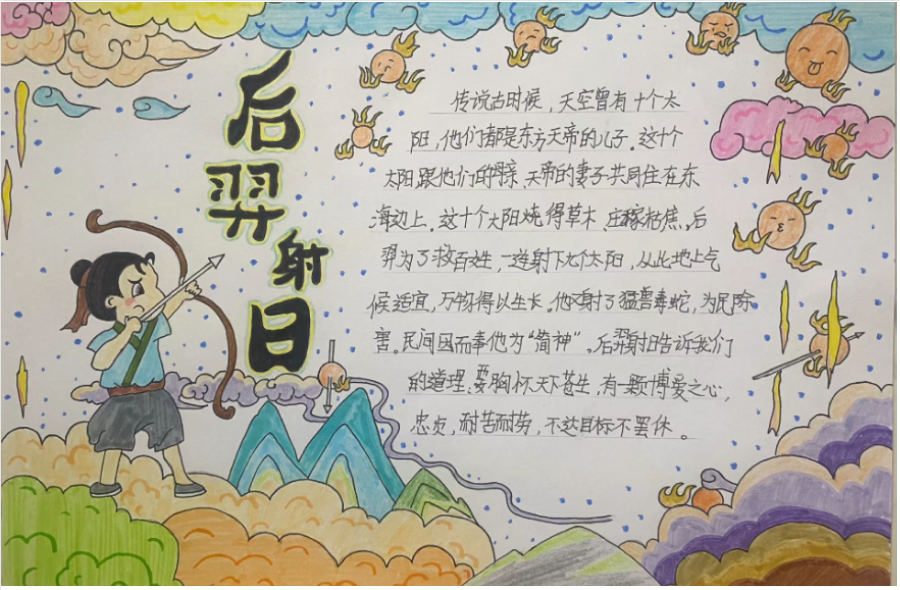 后羿射日
传说古时候，天空曾有十个太
阳，他们都是东方天帝的儿子。这十个
太阳跟他们的母亲、天帝的妻子共同住在东
海边上。这十个太阳烧得草木、庄稼枯焦。后
羿为了救百姓，一连射下九个太阳，从此地上气
候适宜，万物得以生长。他又射了猛兽毒蛇，为民除
害。民间因而奉他为“箭神”。后羿射日告诉我们
的道理：要胸怀天下苍生，有一颗博爱之心，
忠贞，耐苦耐劳，不达目标不罢休。